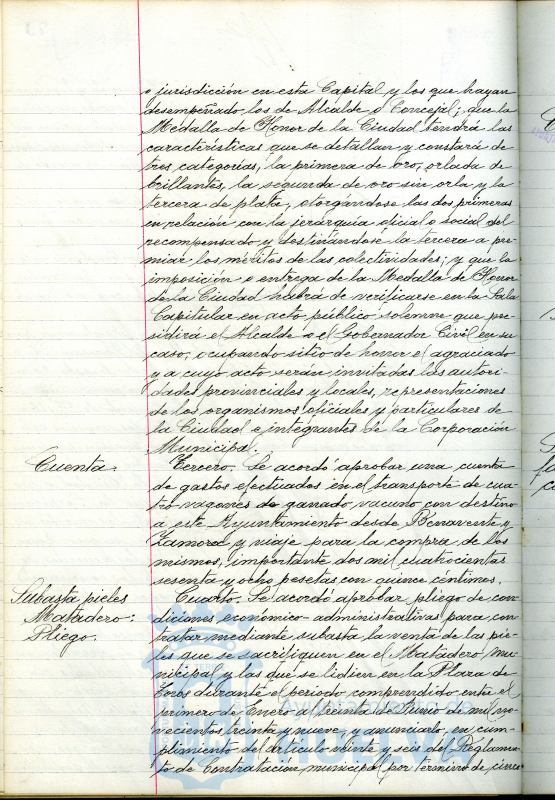 o jurisdicción en esta Capital y los que hayan
desempeñado los de Alcalde o Concejal; que la
Medalla de Honor de la Ciudad tendrá las
características que se detallan y constará de
tres categorías, la primera de oro, orlada de
brillantes, la segunda de oro sin orla y la
tercera de plata, otorgándose las dos primeras
en relación con la jerarquía oficial o social del
recompensado y destinándose la tercera a pre-
miar los méritos de las colectividades; y que la
imposición o entrega de la Medalla de Honor
de la Ciudad habrá de verificarse en la Sala
Capitular en acto público solemne que pre-
sidirá el Alcalde o el Gobernador Civil en su
caso, ocupando sitio de honor el agraciado
y a cuyo acto serán invitadas las autori-
dades provinciales y locales, representaciones
de los organismos oficiales y particulares de
la Ciudad e integrantes de la Corporación
Municipal.
Cuenta. Tercero. Se acordó aprobar una cuenta
de gastos efectuados en el transporte de cua-
tro vagones de ganado vacuno con destino
a este Ayuntamiento desde Benavente y
Zamora y viaje para la compra de los
mismos, importante dos mil cuatrocientas
sesenta y ocho pesetas con quince céntimos.
Subasta pieles
Matadero:
Pliego.
Cuarto. Se acordó aprobar pliego de con-
diciones económico-administrativas para con-
tratar mediante subasta la venta de las pie-
les que se sacrifiquen en el Matadero mu-
nicipal y las que se lidien en la Plaza de
Toros durante el período comprendido entre el
primero de Enero a treinta de Junio de mil no-
vecientos treinta y nueve, y anunciarlo, en cum-
plimiento del artículo veinte y seis del Reglamen-
to de Contratación municipal por término de cinco